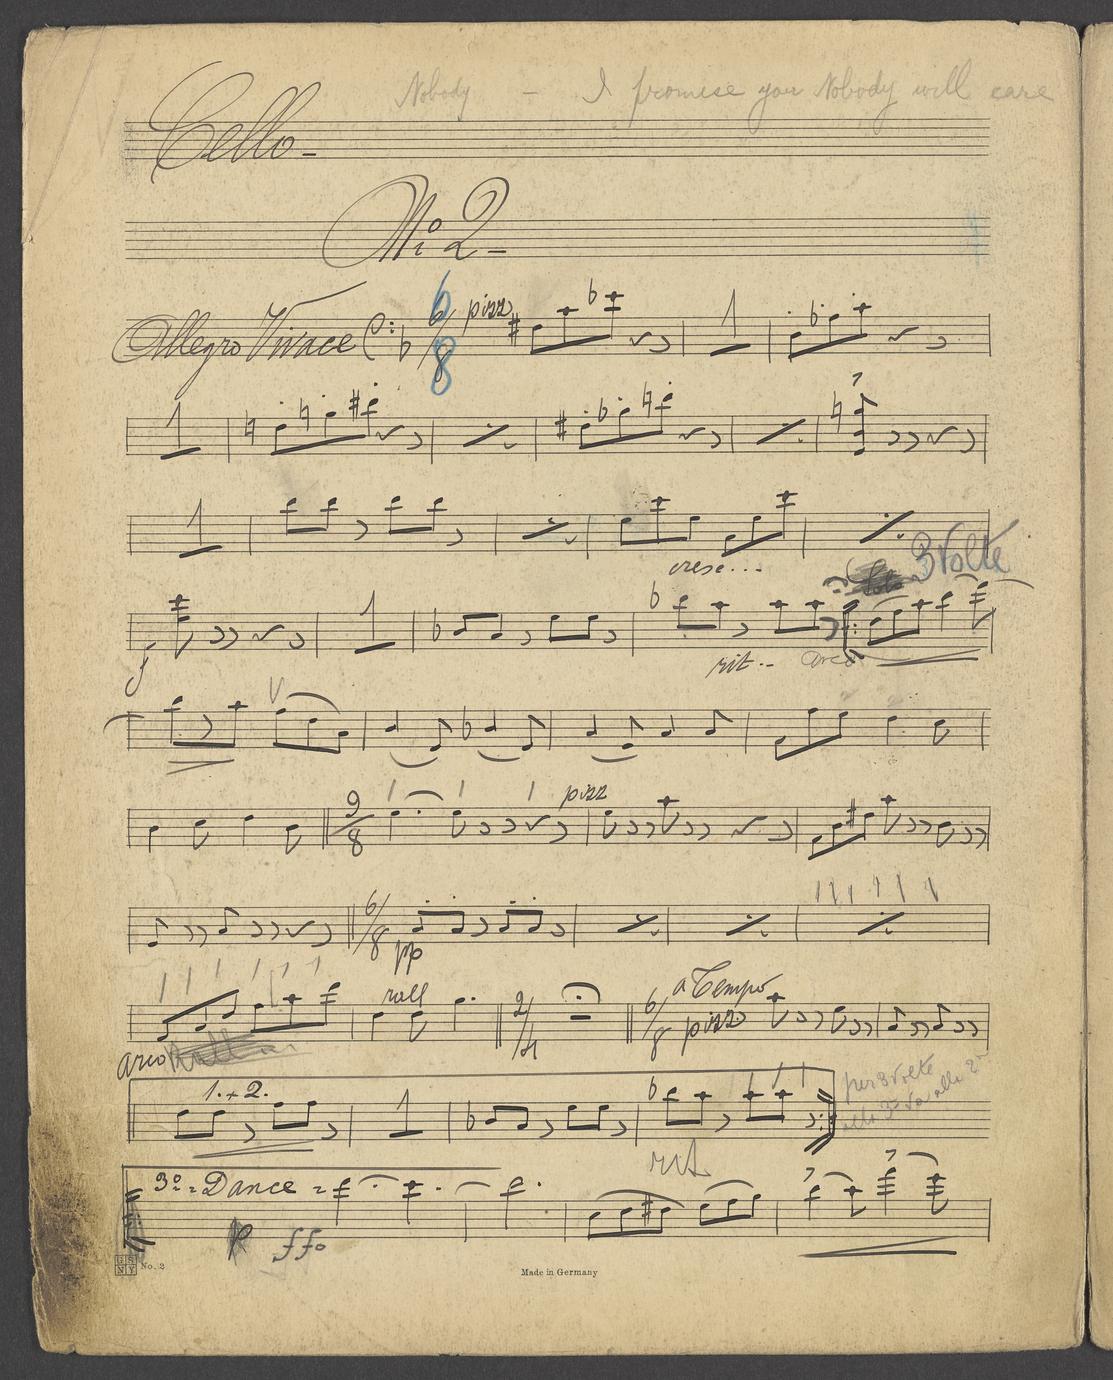 Nobody — I promise you Nobody will care
Cello -
No 2 -
Allegro Vivace 6/8 pizz 1
6
8
1
1
cresc....
3 Volte
f 1
rit.. arco
V
9/8 pizz
6/8
pp
roll 2/4 6/8 a Tempo
pizz
arco
1. + 2. 1
per 3 volte
rit
3º = Dance =
p ffo
GS
NY
No. 2
Made in Germany